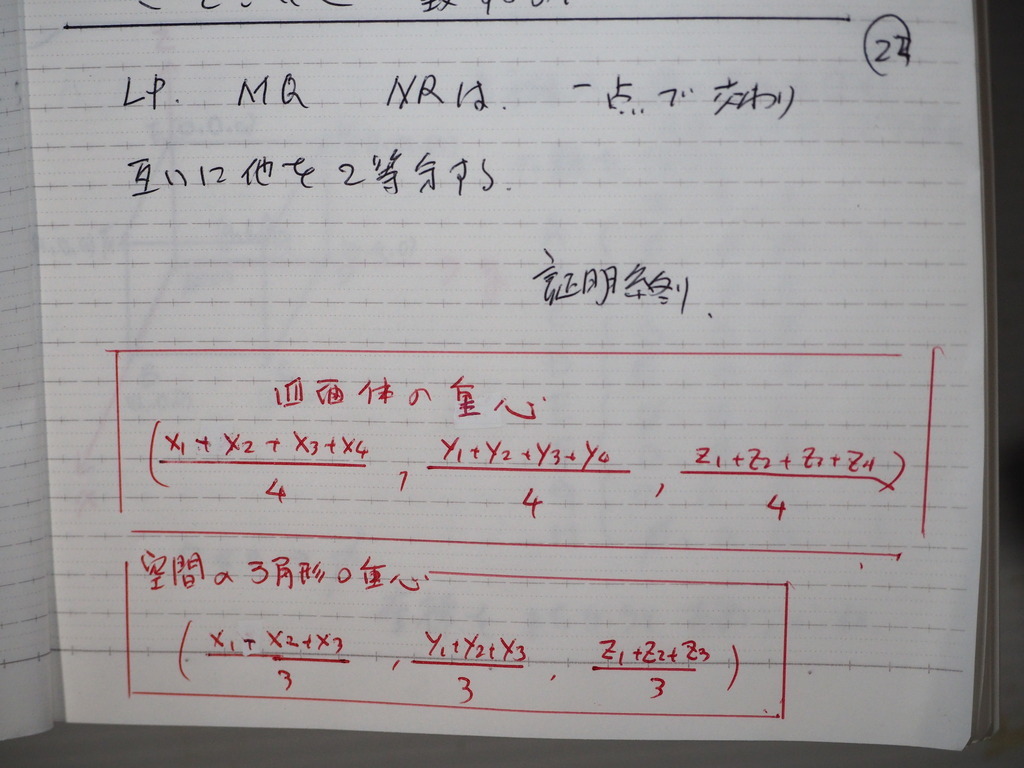 LP. MQ NRは. 一点で交わり
互いに他を2等分する.
証明終り.
四面体の重心
(x₁+x₂+x₃+x₄/4, y₁+y₂+y₃+y₄/4, z₁+z₂+z₃+z₄/4)
空間の3角形の重心
(x₁+x₂+x₃/3, y₁+y₂+y₃/3, z₁+z₂+z₃/3)